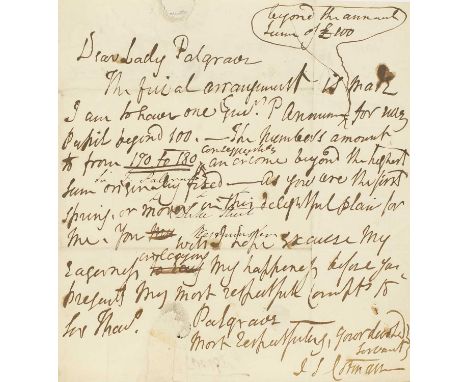 beyond the annual
sum of £100
Dear Lady Palgrave
The final arrangement is made
I am to have one Guin.ª P Annum for every
Pupil beyond 100. — The numbers amount
to from 150 to 180 consequently an income beyond the highest
sum originally fixed — As you are the first
spring, or mover in this delightful plan for
me. You will I hope excuse My
Eagerness My happiness before you
present My most respectful Compts to
Sir Thos. Palgrave
Most respectfully, Your devoted
Servant
J S Cotman